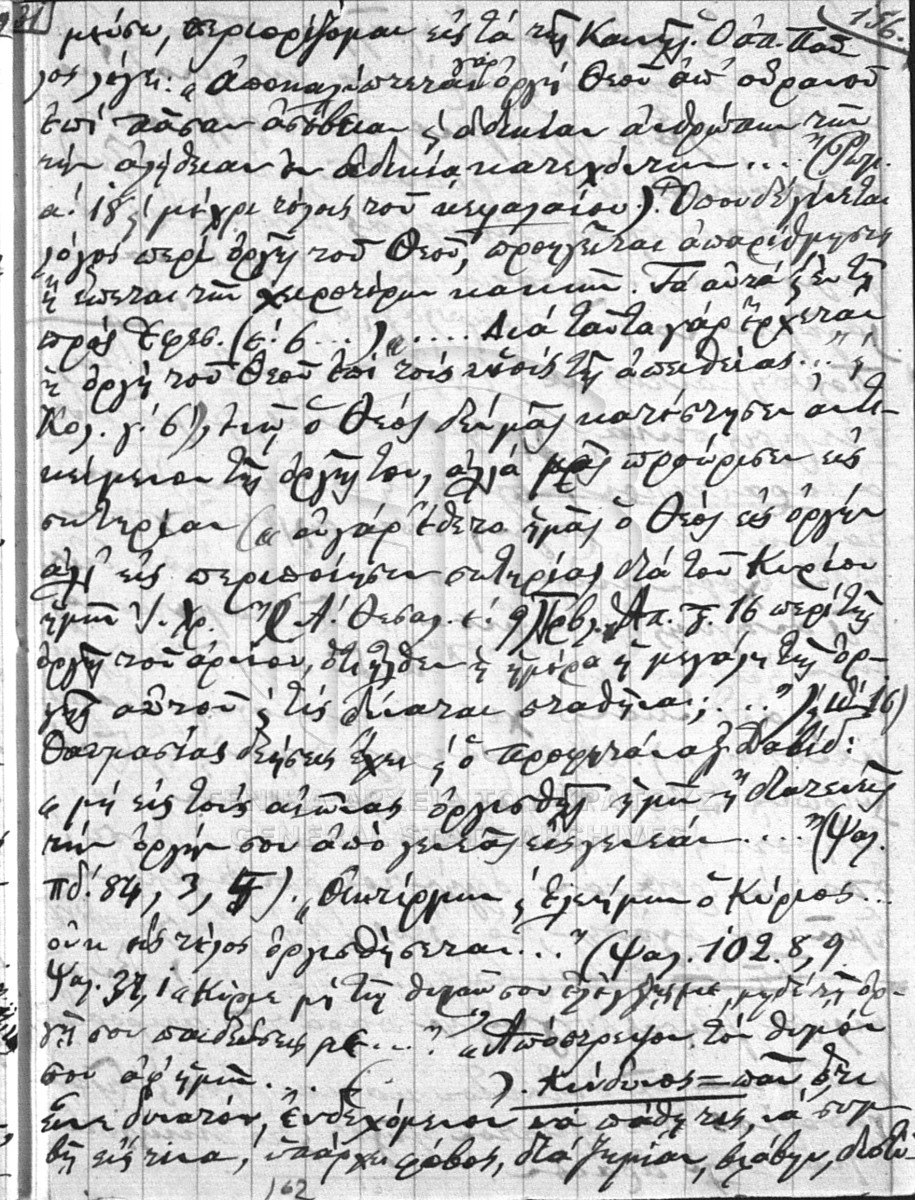 21 156.
μιύσω, περιορίζομαι εἰς τά τῆς Καινῆς. Ὁ ἀπ. Παῦ
λος λέγει: "Ἀποκαλύπτεται γάρ ὀργή Θεοῦ ἀπ' οὐρανοῦ
ἐπί πᾶσαν ἀσέβειαν ϛ ἀδικίαν ἀνθρώπων τῶν
τήν ἀλήθειαν ἐν ἀδικίᾳ κατεχόντων ...." (Ρωμ.
α΄. 18 ϛ μέχρι τέλους τοῦ κεφαλαίου). Ὅπου δέ γίνεται
λόγος περί ὀργῆς τοῦ Θεοῦ, προηγεῖται ἀπαρίθμησις
ἤ ἕπεται τῶν χειροτέρων κακιῶν. Τά αὐτά ϛ ἐν τῇ
πρός Ἐφεσ. (ε΄. 6 ...) "..... Διά ταῦτα γάρ ἔρχεται
ἡ ὀργή τοῦ Θεοῦ ἐπί τούς υἱούς τῆς ἀπειθείας..." ϛ
Κολ. γ΄. 6), ἐνῷ ὁ Θεός δέν μᾶς κατέστησεν ἀντι
κείμενον τῆς ὀργῆς του, ἀλλά μᾶς προώρισεν εἰς
σωτηρίαν ("οὐ γάρ ἔθετο ἡμᾶς ὁ Θεός εἰς ὀργήν
ἀλλ' εἰς περιποίησιν σωτηρίας διά τοῦ Κυρίου
ἡμῶν Ἰ. Χρ. " (Α΄. Θεσαλ. ε΄. 9) Πρβλ. Ἀπ. 16 περί τῆς
ὀργῆς τοῦ ἀρνίου, ὅτι ἦλθεν ἡ ἡμέρα ἡ μεγάλη τῆς ὀρ-
γῆς αὐτοῦ ϛ τίς δύναται σταθῆναι; ....") 16)
Θαυμασίας δεήσεις ἔχει ϛ ὁ προφητάναξ Δαβίδ:
"μή εἰς τούς αἰῶνας ὀργισθῇς ἡμῖν ἤ διατενεῖς
τήν ὀργήν σου ἀπό γενεᾶς εἰς γενεάν ...." (Ψαλ.
πδ΄. 84, 3, 5). "Οἰκτίρμων ϛ ἐλεήμων ὁ Κύριος...
οὐκ εἰς τέλος ὀργισθήσεται..." (Ψαλ. 102. 8, 9
Ψαλ. 37, 1 "Κύριε μή τῷ θυμῷ σου ἐλέγξῃς με, μηδέ τῇ ὀρ-
γῇ σου παιδεύσῃς με...". "Ἀπόστρεψον τόν θυμόν
σου ἀφ' ἡμῶν.... ( ). Κίνδυνος = πᾶν ὅ,τι
εἶνε δυνατόν, ἐνδεχόμενον νά πάθῃ τις, νά συμ
βῇ εἴς τινα, ὑπάρχει φόβος, διά ζημίαν, βλάβην, δυστύ-
162
ΓΕΝΙΚΑ ΑΡΧΕΙΑ ΤΟΥ ΚΡΑΤΟΥΣ
GENERAL STATE ARCHIVES